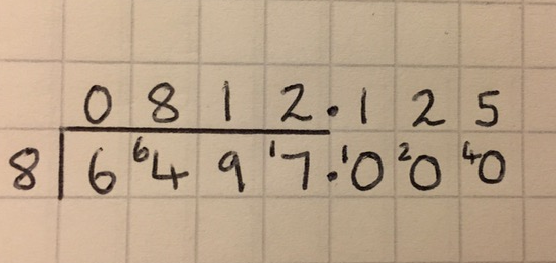 0 8 1 2 . 1 2 5
8 6 ⁶4 9 ¹7 . ¹0 ²0 ⁴0